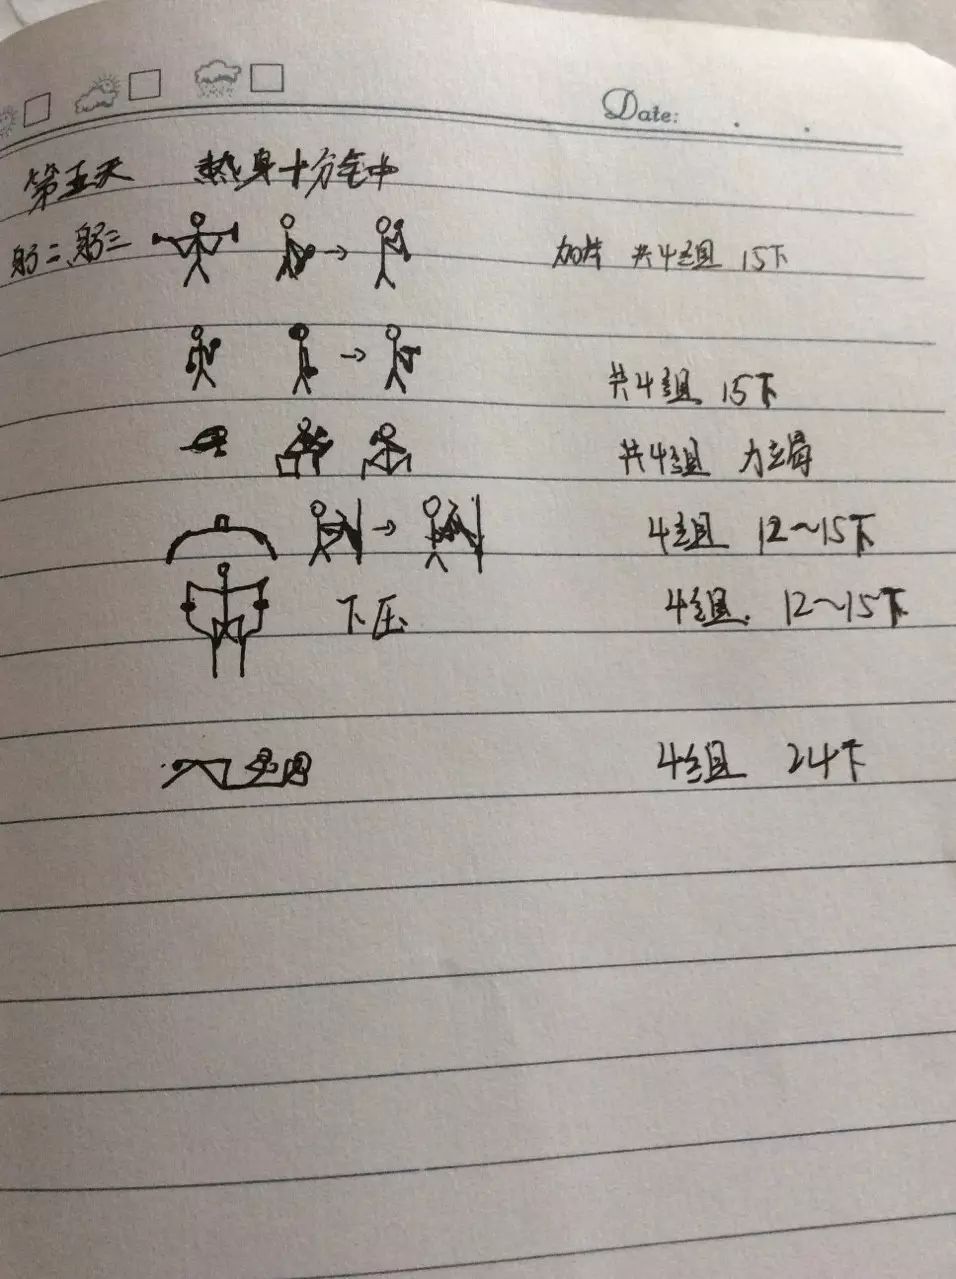 Date:
第五天 热身十分钟
肱二、肱三 加片 共4组 15下
共4组 15下
共4组 力竭
4组 12~15下
下压 4组 12~15下
4组 24下